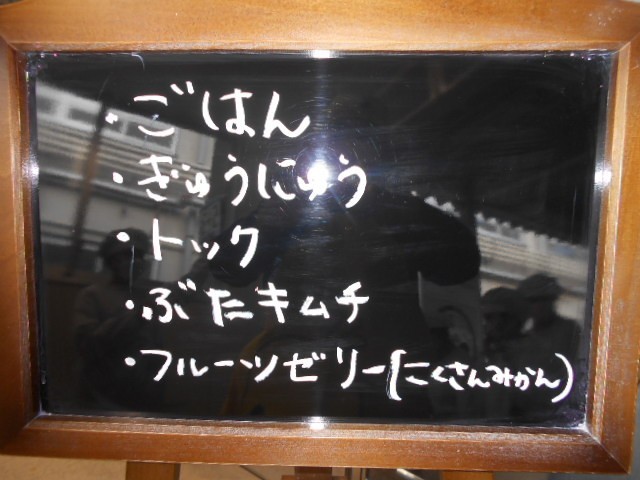 ・ごはん
・ぎゅうにゅう
・トック
・ぶたキムチ
・フルーツゼリー(こくさんみかん)